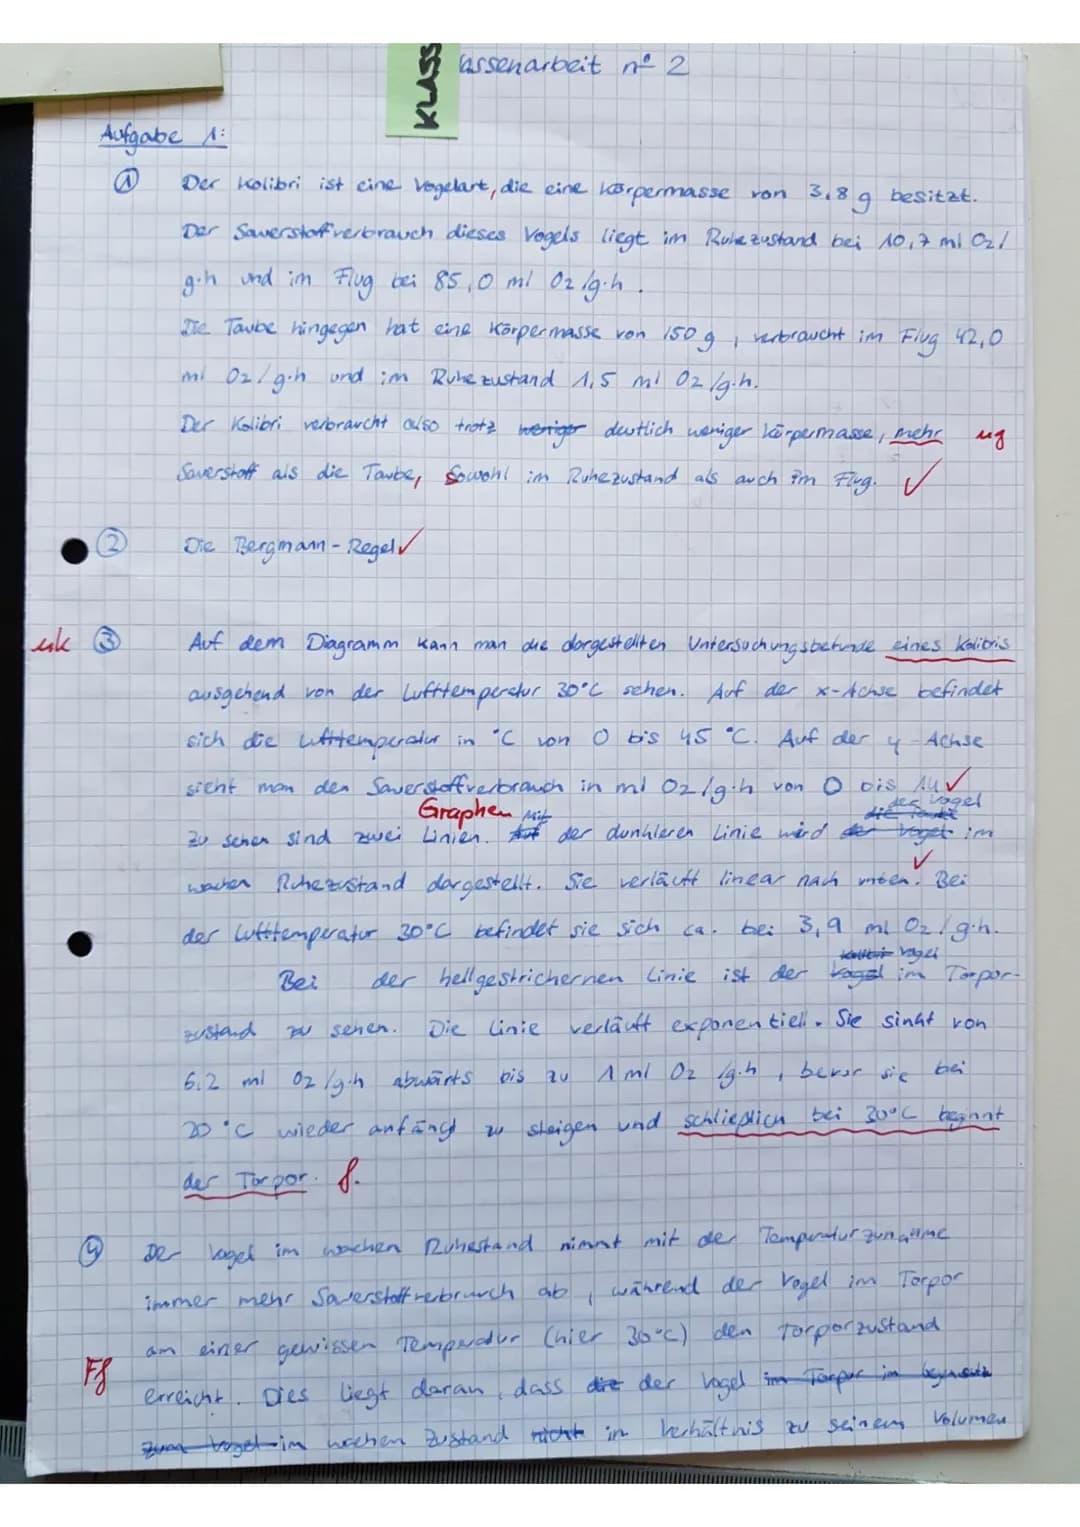 KLASS
lassenarbeit nº 2
Aufgabe 1:
① Der Kolibri ist eine Vogelart, die eine Körpermasse von 3,8 g besitzt.
Der Sauerstoffverbrauch dieses Vogels liegt im Ruhezustand bei 10,7 ml O2/
g·h und im Flug bei 85,0 ml O2/g·h.
Die Taube hingegen hat eine Körpermasse von 150 g, verbraucht im Flug 42,0
ml O2/g·h und im Ruhezustand 1,5 ml O2/g·h.
Der Kolibri verbraucht also trotz weniger deutlich weniger Körpermasse, mehr ug
Sauerstoff als die Taube, sowohl im Ruhezustand als auch im Flug. ✓
② Die Bergmann-Regel ✓
③ Auf dem Diagramm kann man die dargestellten Untersuchungsbefunde eines Kolibris
ausgehend von der Lufttemperatur 30°C sehen. Auf der x-Achse befindet
sich die Lufttemperatur in °C von 0 bis 45 °C. Auf der y-Achse
sieht man den Sauerstoffverbrauch in ml O2/g·h von 0 bis 14 ✓
Graphen Mit der Vogel
zu sehen sind zwei Linien. Auf der dunkleren Linie wird der Vogel im
wachen Ruhezustand dargestellt. Sie verläuft linear nach unten. ✓ Bei
der Lufttemperatur 30°C befindet sie sich ca. bei 3,9 ml O2/g·h.
Kolibri Vogel
Bei der hellgestrichernen Linie ist der Vogel im Torpor-
zustand zu sehen. Die Linie verläuft exponentiell. Sie sinkt von
6,2 ml O2/g·h abwärts bis zu 1 ml O2/g·h, bevor sie bei
20 °C wieder anfängt zu steigen und schließlich bei 30°C beginnt
der Torpor. f.
④ Der Vogel im wachen Ruhestand nimmt mit der Temperaturzunahme
immer mehr Sauerstoffverbrauch ab, während der Vogel im Torpor
an einer gewissen Temperatur (hier 30°C) den Torporzustand
Ff erreicht. Dies liegt daran, dass die der Vogel im Torpor im
zum Vogel im wachen Zustand nicht in Verhältnis zu seinem Volumen